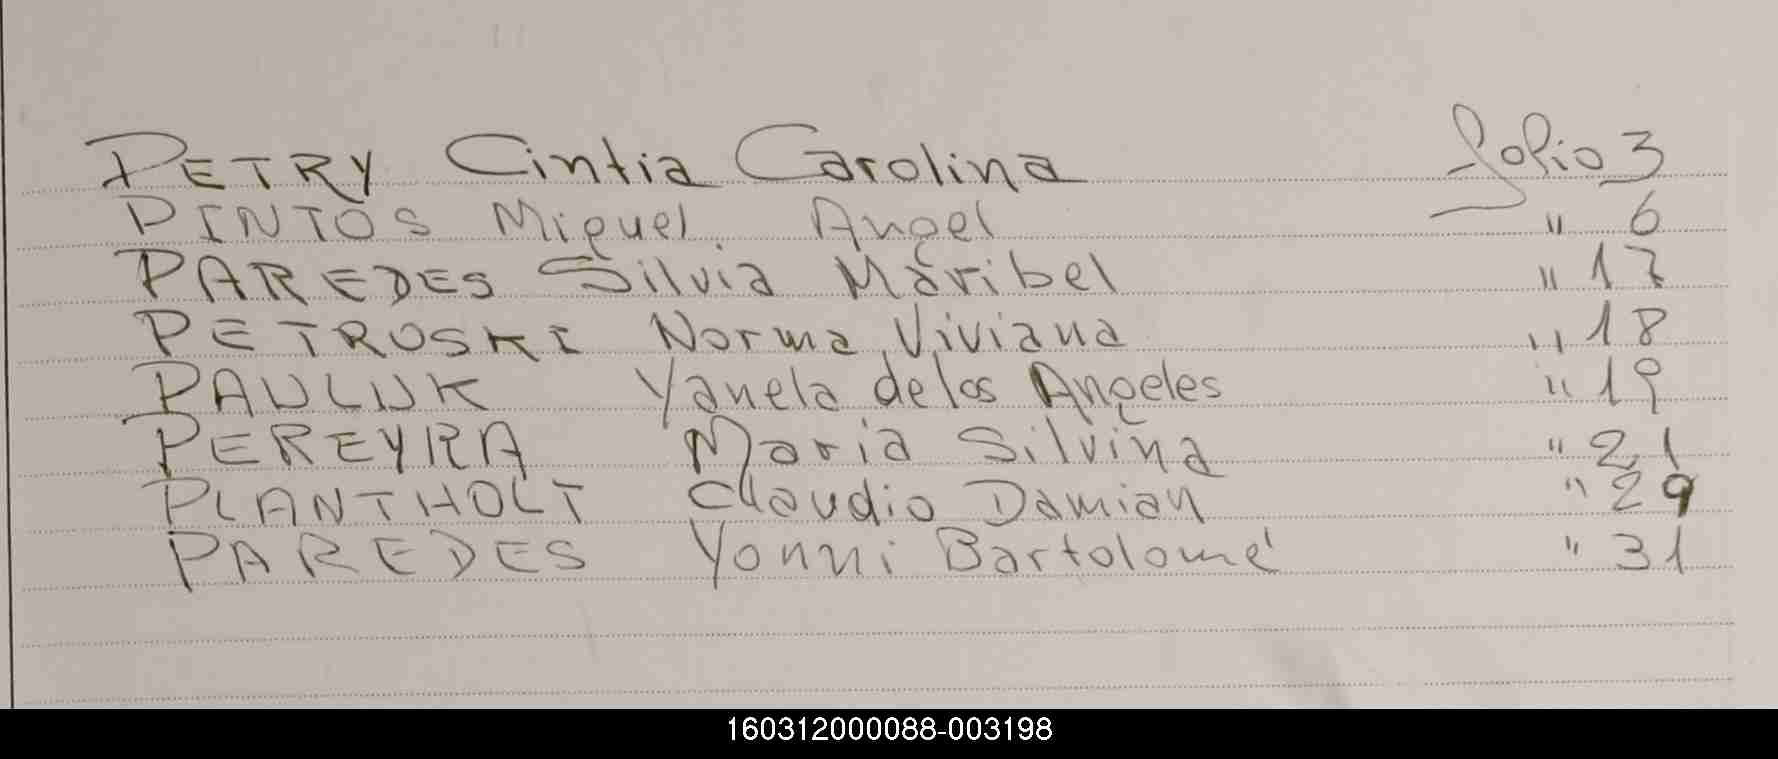 PETRY Cintia Carolina folio 3
PINTOS Miguel Angel " 6
PAREDES Silvia Maribel " 17
PETROSKI Norma Viviana " 18
PAULUK Yanela de los Angeles " 19
PEREYRA Maria Silvina " 21
PLANTHOLT Claudio Damian " 29
PAREDES Yonni Bartolomé " 31
160312000088-003198